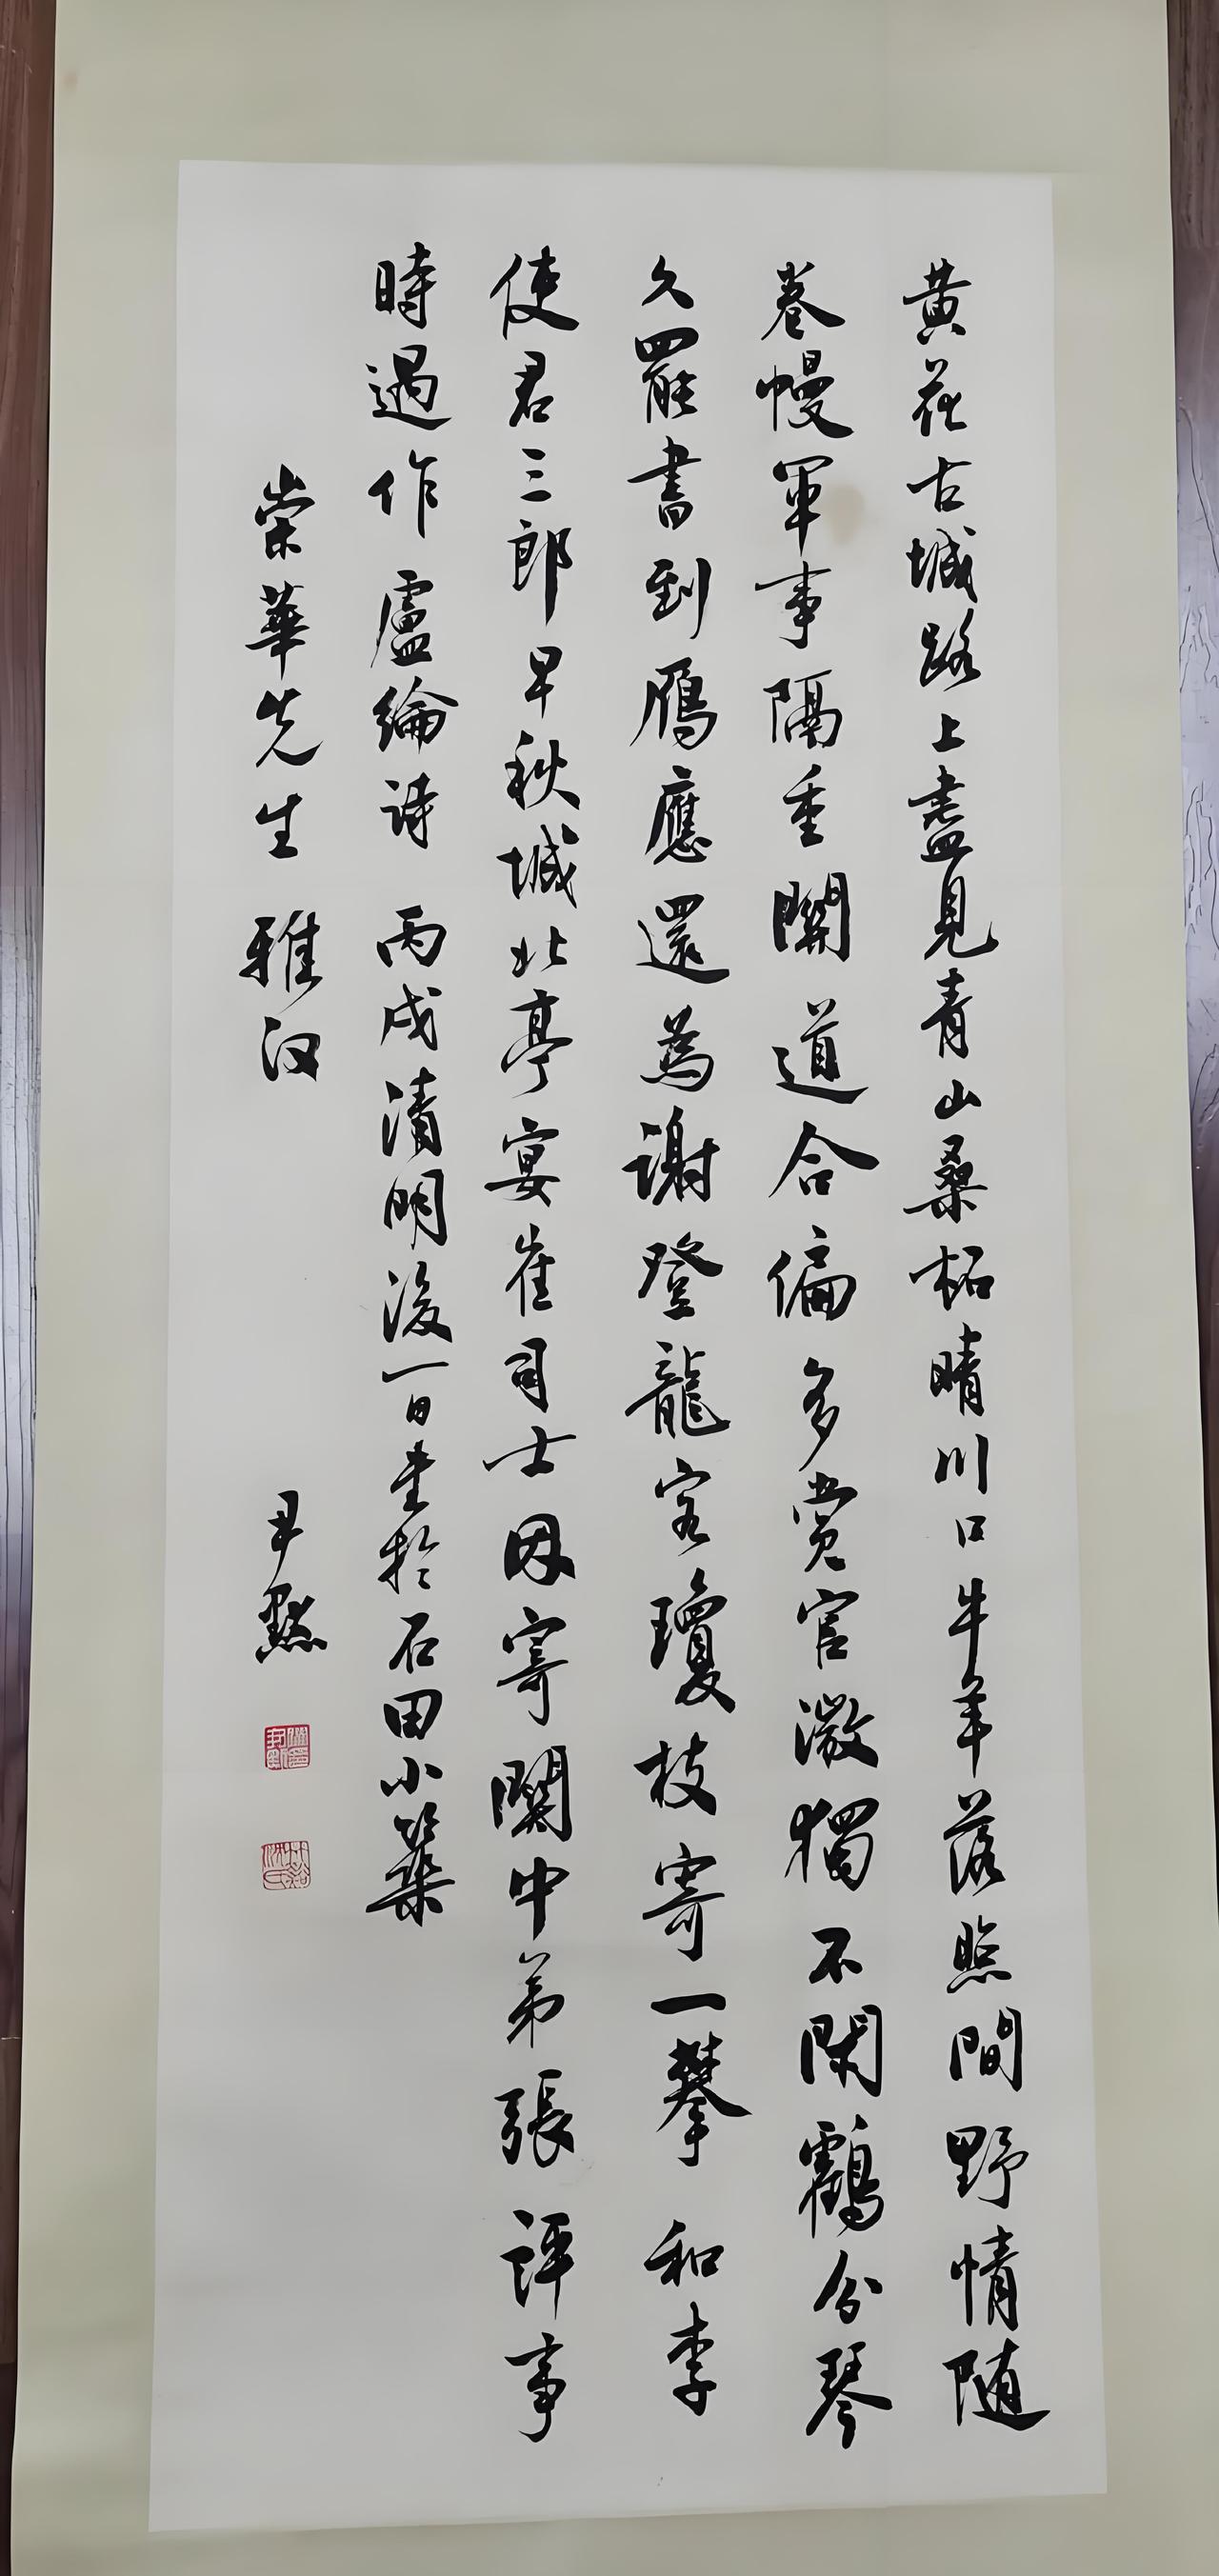 黃花古城路上盡見青山桑柘晴川口牛羊落照間野情隨
卷幔軍事隔重關道合偏多賞官微獨不閑鶴分琴
久罷書到雁應還為謝登龍客瓊枝寄一攀 和李
使君三郎早秋城北亭宴崔司士因寄關中弟張評事
時過作 盧綸詩 丙戌清明後一日書於石田小築
榮華先生 雅汉
尹默